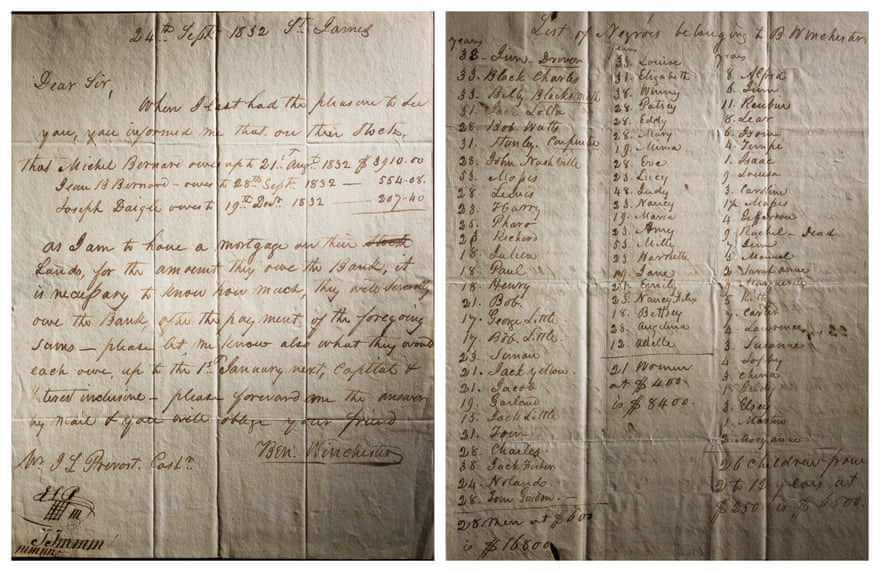 24th Sept. 1832 St. James
Dear Sir,
When I last had the pleasure to see
you, you informed me that on their Stock,
that Michel Bernard owes up to 21st Augt. 1832 $ 3910.00
B Bernard - owes to 28th Sept. 1832 — 554.08.
Joseph Daigle owes to 19th 1832 207.40
as I am to have a mortgage on their Stock
Lands, for the amount they owe the Bank, it
is necessary to know how much, they will severally
owe the Bank, after the payment of the foregoing
Sums — please let me know also what they would
each owe, up to the 1st January next, Capital &
Interest inclusive — please forward me the answer
by Mail & you will oblige your friend
Ben. Winchester
Mr J L Prevost. Cashr.
List of Negroes belonging to B Winchester
years
38. Jim - Drover
33. Black Charles
33. Billy Blacksmith
51. Jack Lolla
28. Bob Watts
31. Stanley. Carpenter
28. John Nashville
53. Moses
28. Lewis
23. Harry
25. Pharo
20 Richard
18. Julien
18. Paul
18. Henry
21. Bob
17. George Little
17. Bob Little.
23. Simon
21. Jack yellow.
21. Jacob
19. Garland
15. Jack Little
31. Tour
28. Charles.
38. Jack Fisher
24. Noland
28. Tom Gordon. —
28 men at $ 600
is $ 16800
years
33. Louise
31. Elizabeth
38. Winny
28. Patsey
28. Eddy
28. Mary
19. Mima
28. Eve
23. Lucy
48. Judy
23. Nancy
19. Maria
23. Amey
53. Milly
23. Harriette
19. Jane
21. Emily
23. Nancy
18. Betsey
28. Angelina
12. Adelle
21 Women
at $ 400
is $ 8400.
years
8. Alfred
6. Jim
11. Reubin
8. Lear
6. Isom
4. Tempe
1. Isaac
9. Louisa
3. Caroline
12. Moses
4. Jefferson
9. Rachel - Dead
7. Jim
4. Manuel
2. Sarah anne
Marguerite
5. Kitty
7. Carter
4. Lawrence
3. Susanne
4. Sophy
3. China
1. Eddy
3. Elsey
1. Martin
2. Mary anne
26 children from
2 to 12 years at
$ 250 is $ 6500